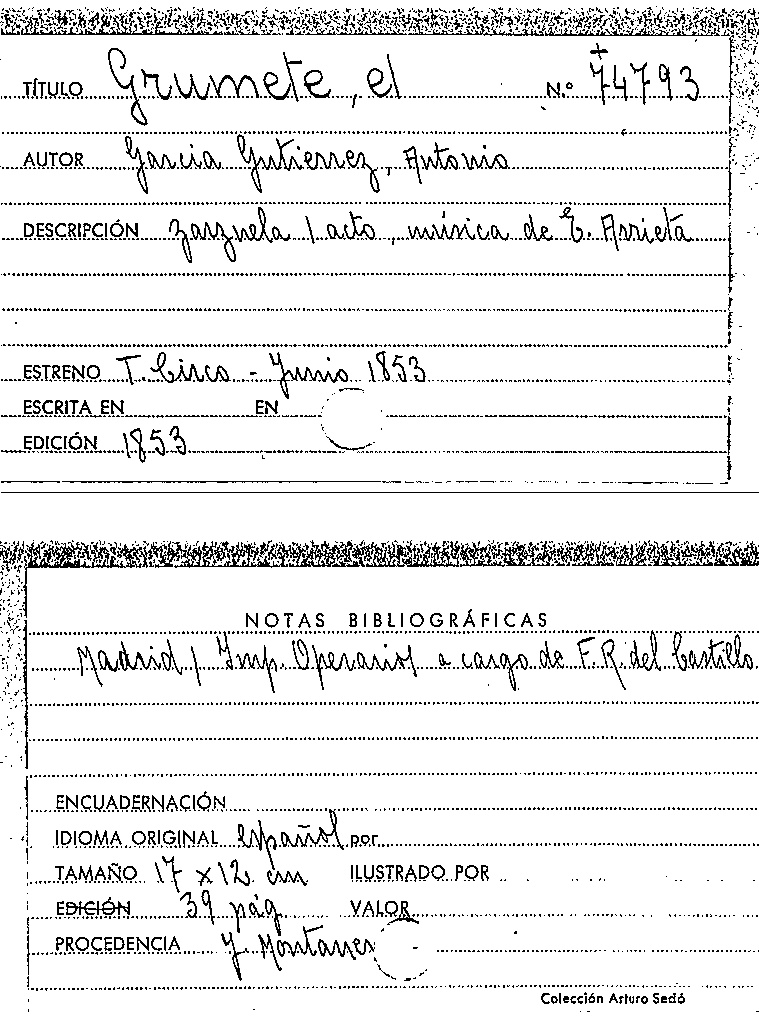 TÍTULO Grumete, el N.º 74793
AUTOR Garcia Gutierrez, Antonio
DESCRIPCIÓN zarzuela 1 acto, música de E. Arrieta
ESTRENO T. Circo - Junio 1853
ESCRITA EN EN
EDICIÓN 1853
NOTAS BIBLIOGRÁFICAS
Madrid, Imp. Operarios a cargo de F.R. del Castillo
ENCUADERNACIÓN
IDIOMA ORIGINAL español por
TAMAÑO 17 x 12 cm ILUSTRADO POR
EDICIÓN 39 pág. VALOR
PROCEDENCIA J. Montaner
Colección Arturo Sedó